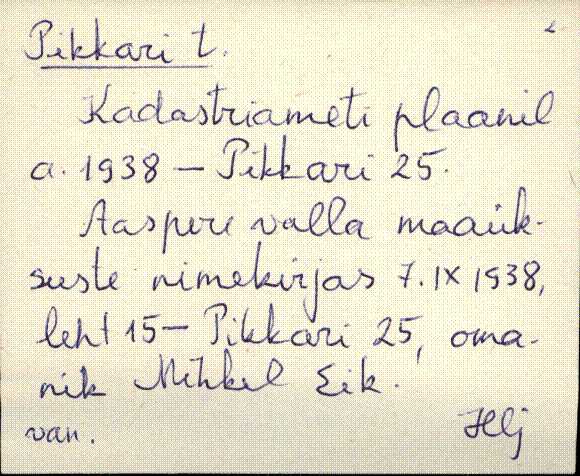 Pikkari t.
Kadastriameti plaanil
a. 1938 – Pikkari 25.
Aaspere valla maaük-
suste nimekirjas 7. IX 1938,
leht 15 – Pikkari 25, oma-
nik Mihkel Eik.
van. Hlj